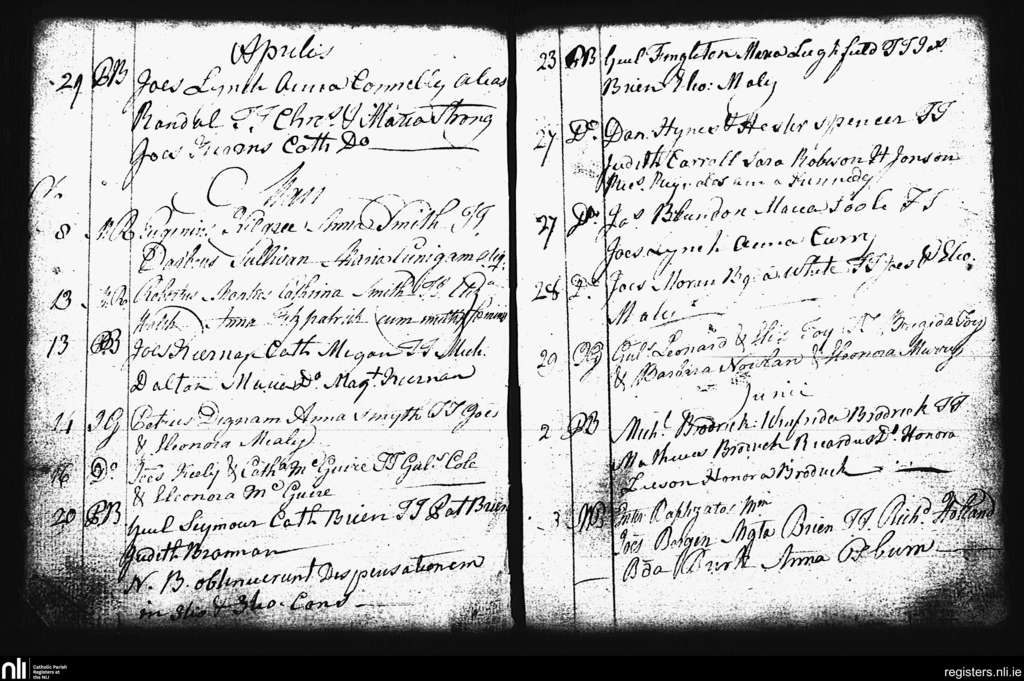 Aprilis
29 PB Joes Lynch Anna Connelly alias
Randal TT Chrs. & Maria Strong
Joes Kiernns Cath Do
8 Eugenius Anna Smith TT
Sullivan Maria Cunigam
13 Robertus Cathrina Smith TT
Walsh Anna Fitzpatrick cum multis
13 PB Joes Kiernan Cath Megan TT Mich.
Dalton Maria Do Magt. Kiernan
14 JG Petrus Dignam Anna Smyth TT Joes
& Eleonora Mealy
16 Do Joes Healy & Catha McGuire TT Guls. Cole
& Eleonora McGuire
20 PB Guil Seymour Cath Brien TT Pat Brien
Judith Brannan
N. B. obtinuerunt Dispensationem
in 3tio & 3tio. Cons
23 PB Guil Fingleton Maria TT Jas
Brien Elio: Maly
27 Do. Dan Hynes & Hester Spencer TT
Judith Carroll Sara Robeson H Jonson
Reynolds Kennedy
27 Do Jas Blundon Maria Toole TT
Joes Lynch Anna Curry
28 Do Joes Moran Bgda White TT Joes & Elio.
Mali
29 Guls. Leonard & Eliz Foy TT Brigida Foy
& Barbara & Eleonora Murray
Junii
2 PB Michl Brodrick Brodrick TT
Matheus Brodrick Ricardus Do Honora
Leeson Honora Brodrick
3 Baptizatos
Joes Bergen Mgta Brien TT Richd. Holland
Bda Burk Anna Osburn
nli
Catholic Parish
Registers at
the NLI
registers.nli.ie